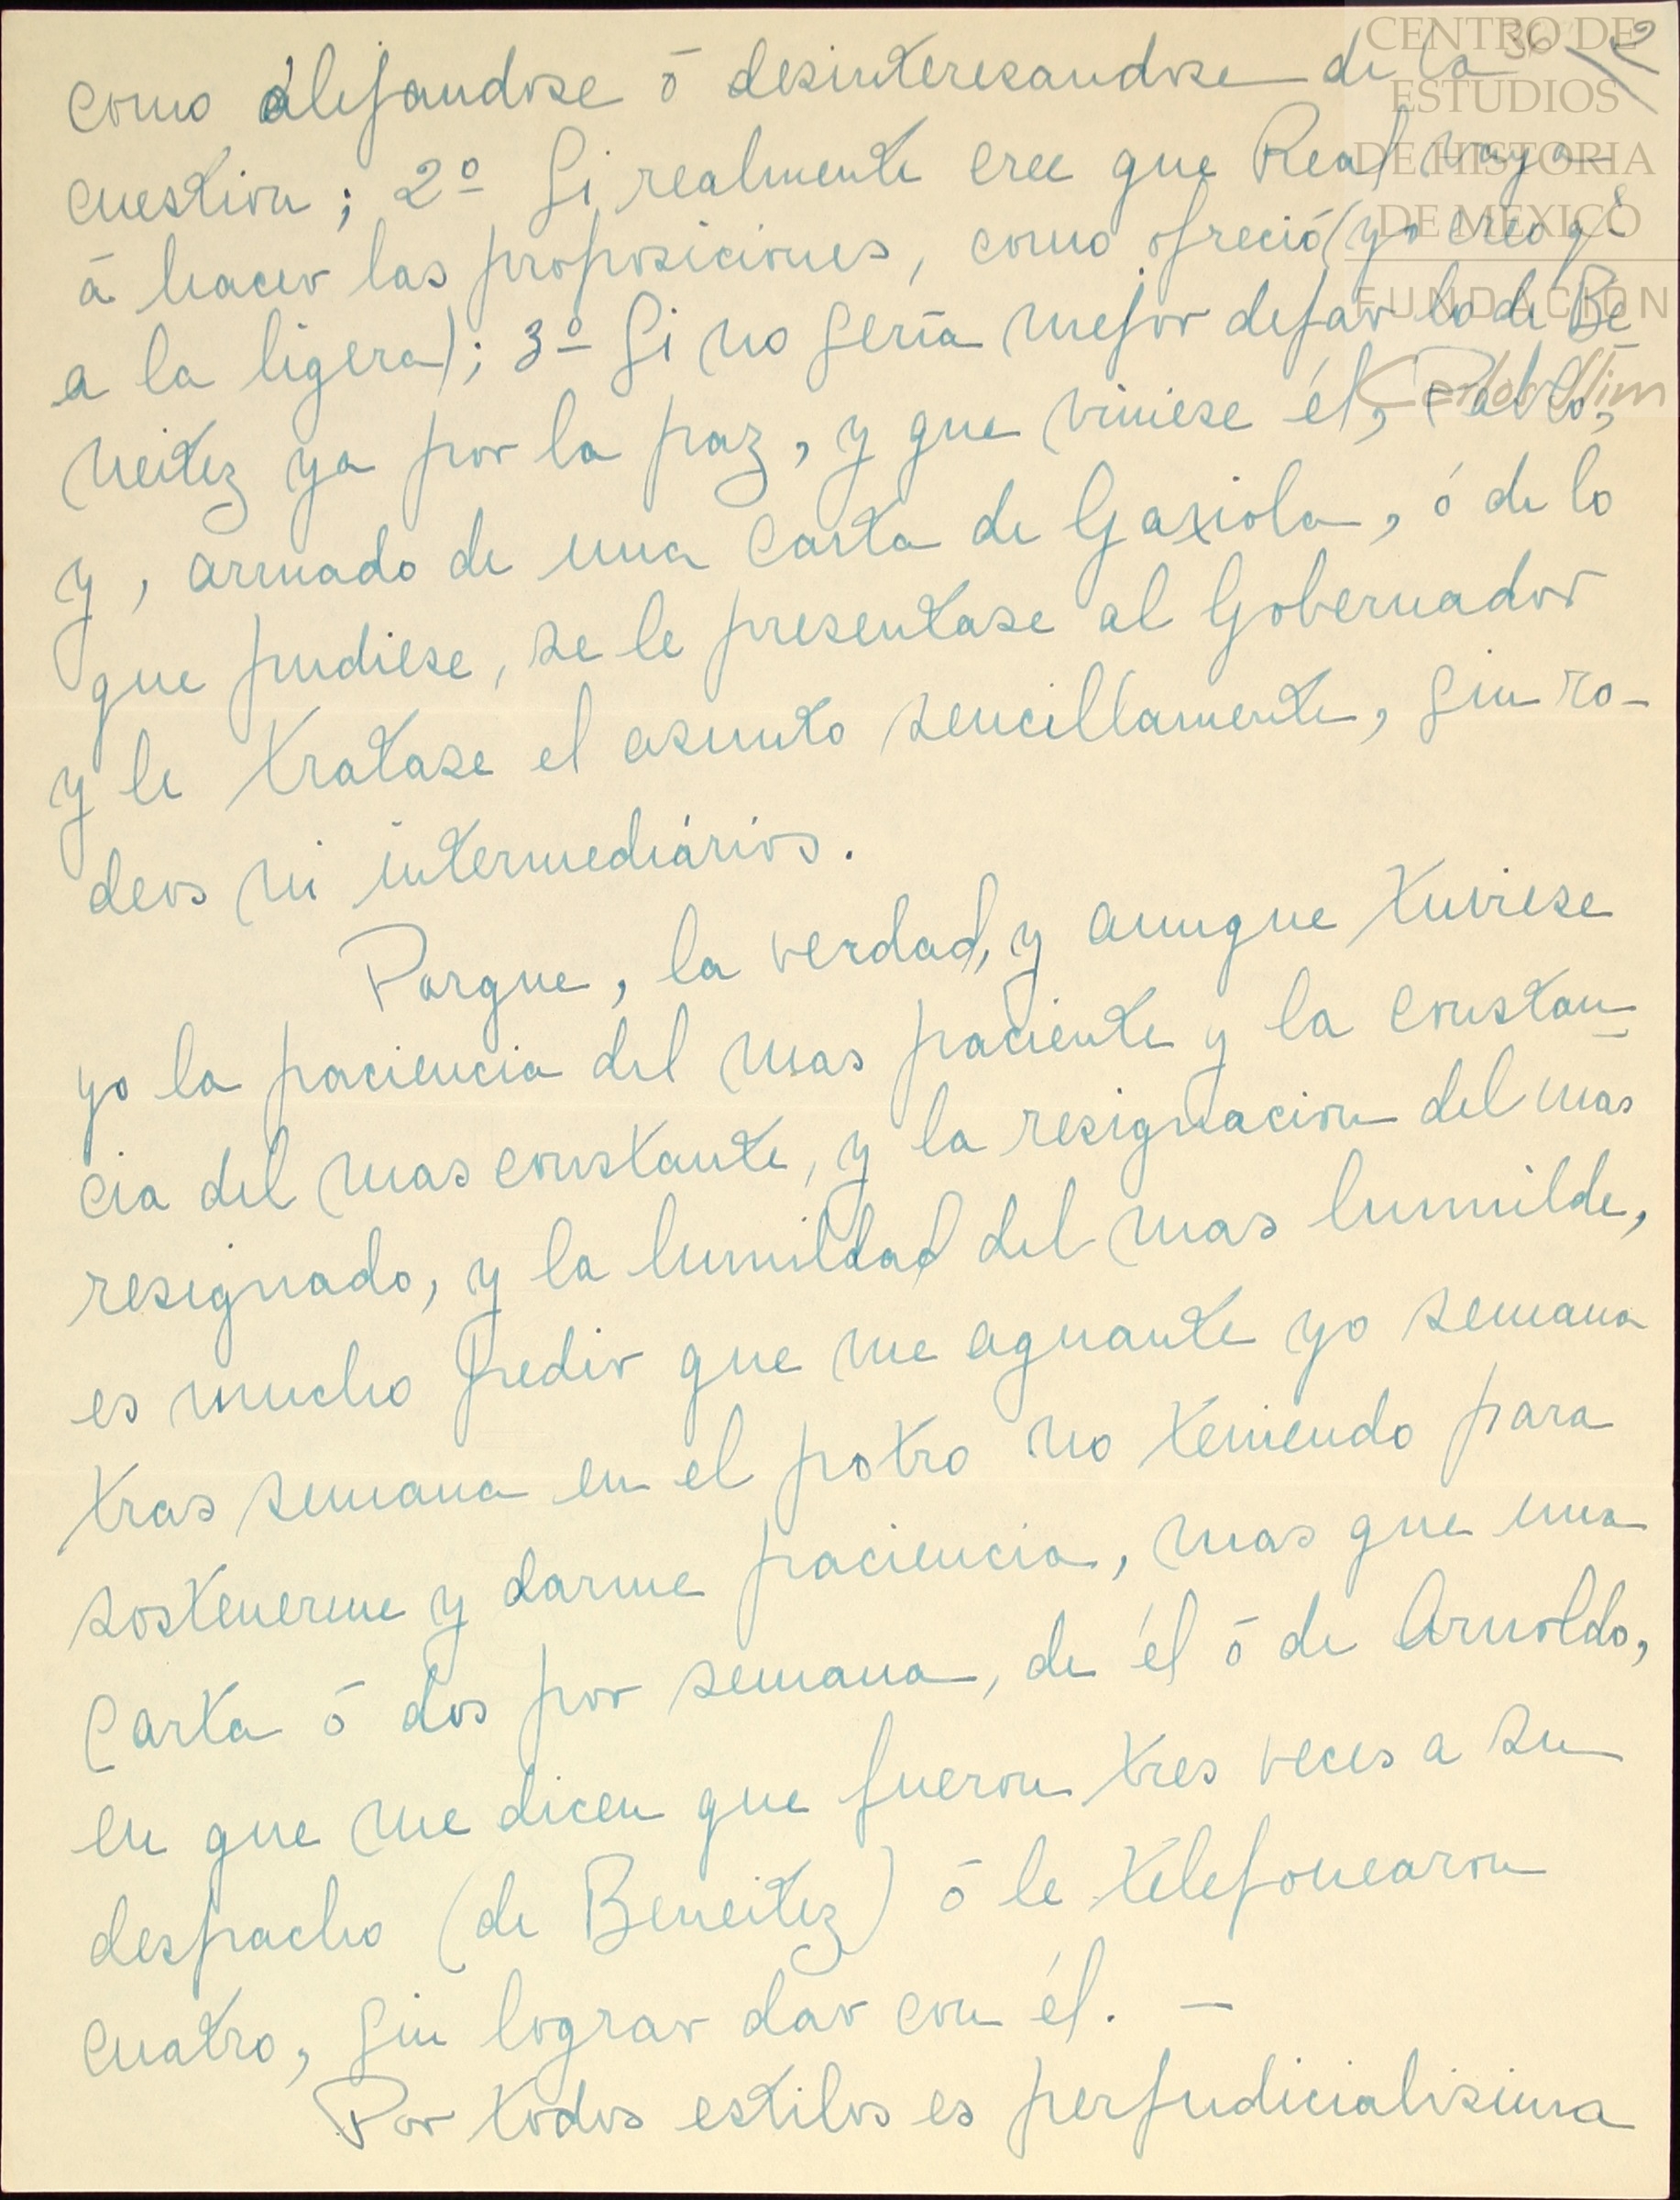 CENTRO DE
ESTUDIOS
DE HISTORIA
DE MÉXICO
FUNDACIÓN
Carlos Slim
como alejandose ó desinteresandose de la
cuestion; 2º Si realmente cree que Real vaya
á hacer las proposiciones, como ofreció (yo creo q.e
a la ligera); 3º Si no sería mejor dejar lo de Be-
neitez ya por la paz, y que viniese él, Pablo,
y, armado de una carta de Gaxiola, ó de lo
que pudiese, se le presentase al Gobernador
y le tratase el asunto sencillamente, sin ro-
deos ni intermediários.
Porque, la verdad, y aunque tuviese
yo la paciencia del mas paciente y la constan-
cia del mas constante, y la resignacion del mas
resignado, y la humildad del mas humilde,
es mucho pedir que me aguante yo semana
tras semana en el potro no teniendo para
sostenerme y darme paciencia, mas que una
carta ó dos por semana, de él ó de Arnoldo,
en que me dicen que fueron tres veces a su
despacho (de Beneitez) ó le telefonearon
cuatro, sin lograr dar con él. —
Por todos estilos es perjudicialisima